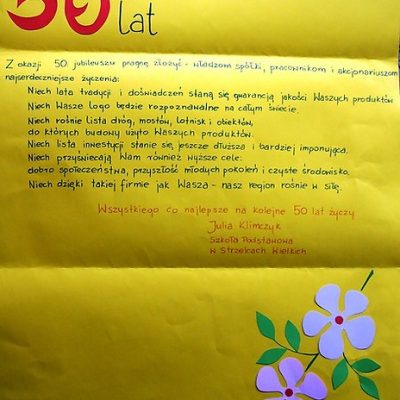 50
lat
Z okazji 50. jubileuszu pragnę złożyć - władzom spółki, pracownikom i akcjonariuszom
najserdeczniejsze życzenia:
Niech lata tradycji i doświadczeń staną się gwarancją jakości Waszych produktów.
Niech Wasze logo będzie rozpoznawalne na całym świecie.
Niech rośnie lista dróg, mostów, lotnisk i obiektów,
do których budowy użyto Waszych produktów.
Niech lista inwestycji stanie się jeszcze dłuższa i bardziej imponująca.
Niech przyświecają Wam również wyższe cele:
dobro społeczeństwa, przyszłość młodych pokoleń i czyste środowisko.
Niech dzięki takiej firmie jak Wasza - nasz region rośnie w siłę.
Wszystkiego co najlepsze na kolejne 50 lat życzy
Julia Klimczyk
Szkoła Podstawowa
w Strzelcach Wielkich